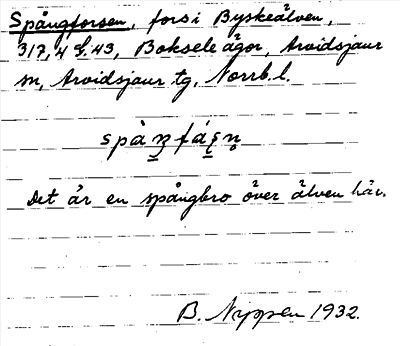 Spångforsen, fors i Byskeälven,
317,4 &. 43, Boksele ägor, Arvidsjaur
sn, Arvidsjaur tg, Norrb. l.
Det är en spångbro över älven här.
B. Nyppen 1932.